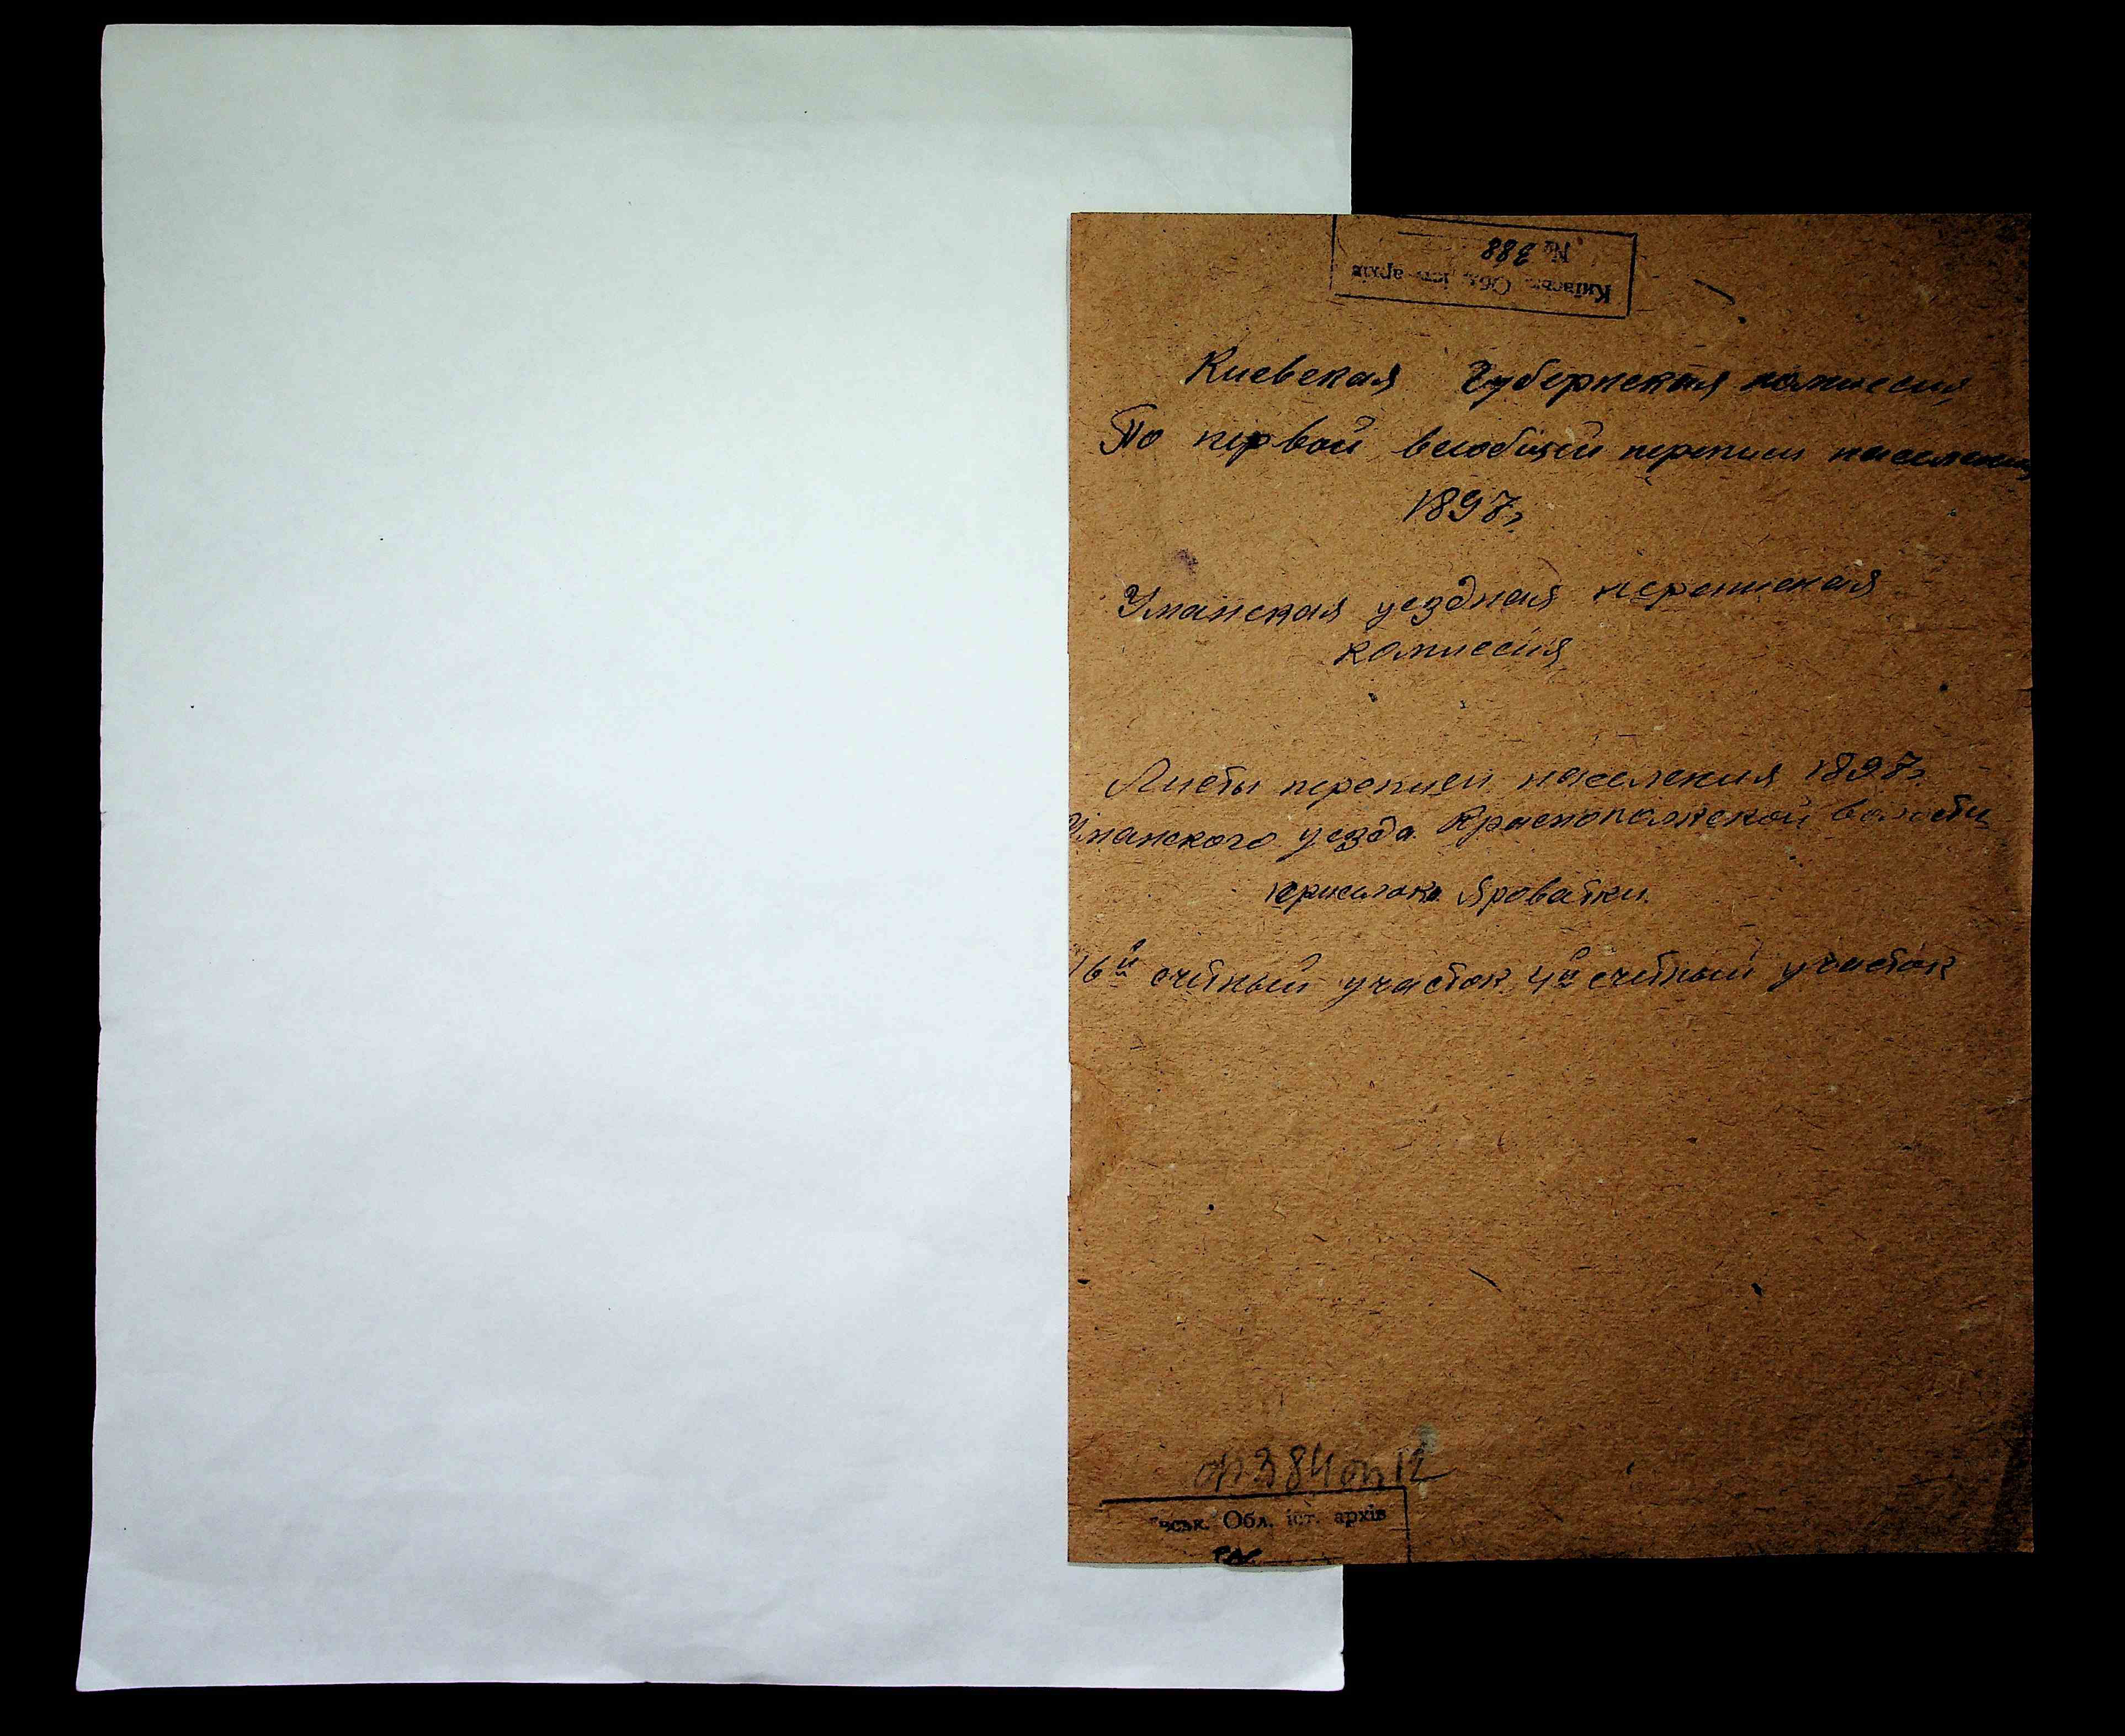 Київськ. Обл. іст. архів
№ 388
Киевская Губернская комиссия
По первой всеобщей переписи населения
1897г.
Уманская уездная переписная
комиссия
Листы переписи населения 1897г.
Уманского уезда Краснопольской волости
приселок Яроватки.
16й счётный участок 4й счётный участок
ф 384 оп 12
ївськ. Обл. іст. архів